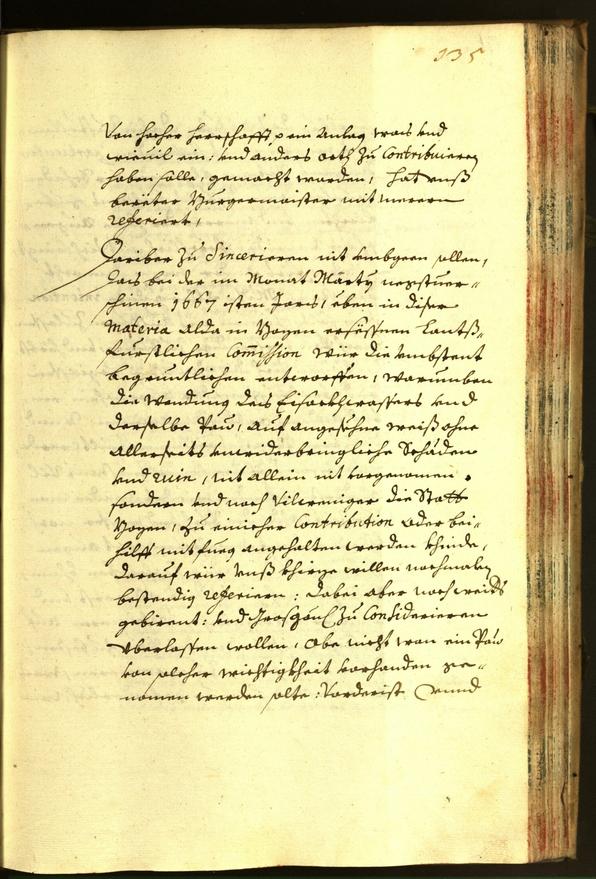 135
Von hocher Herrschafft p ein Anlag was und
wieuil ein: und anders orth zu Contribuieren
haben solle, gemacht worden, hat unß
Burgermaister mit merern
referiert,
Dariber zu Sincerieren nit umbgeen sollen,
das bei der im Monat Marty nexstuer-
schinen 1667 isten Jars, eben in diser
materia alda in Bozen Landtß-
fürstlichen Commission wür die umbstent
begruntlichen entworffen, warumben
die Wendung des Eisackhwassers und
derselbe Pau, auf angesechne weiß ohne
allerseits unwiderbringliche Schäden
und ruin, nit allein nit vorgenomen,
sondern und noch vilweniger die Statt
Bozen, zu einicher Contribution oder bei-
hilff mit fueg angehalten werden khinde,
darauf wür unß khirze willen nochmalen
bestendig referiern: dabei aber noch weits
gebirent: und zu Considerieren
überlassen wollen, Obe nicht wan ein Pau
von solcher wichtigkheit vorhanden ge-
nomen werden solte: Vorderist